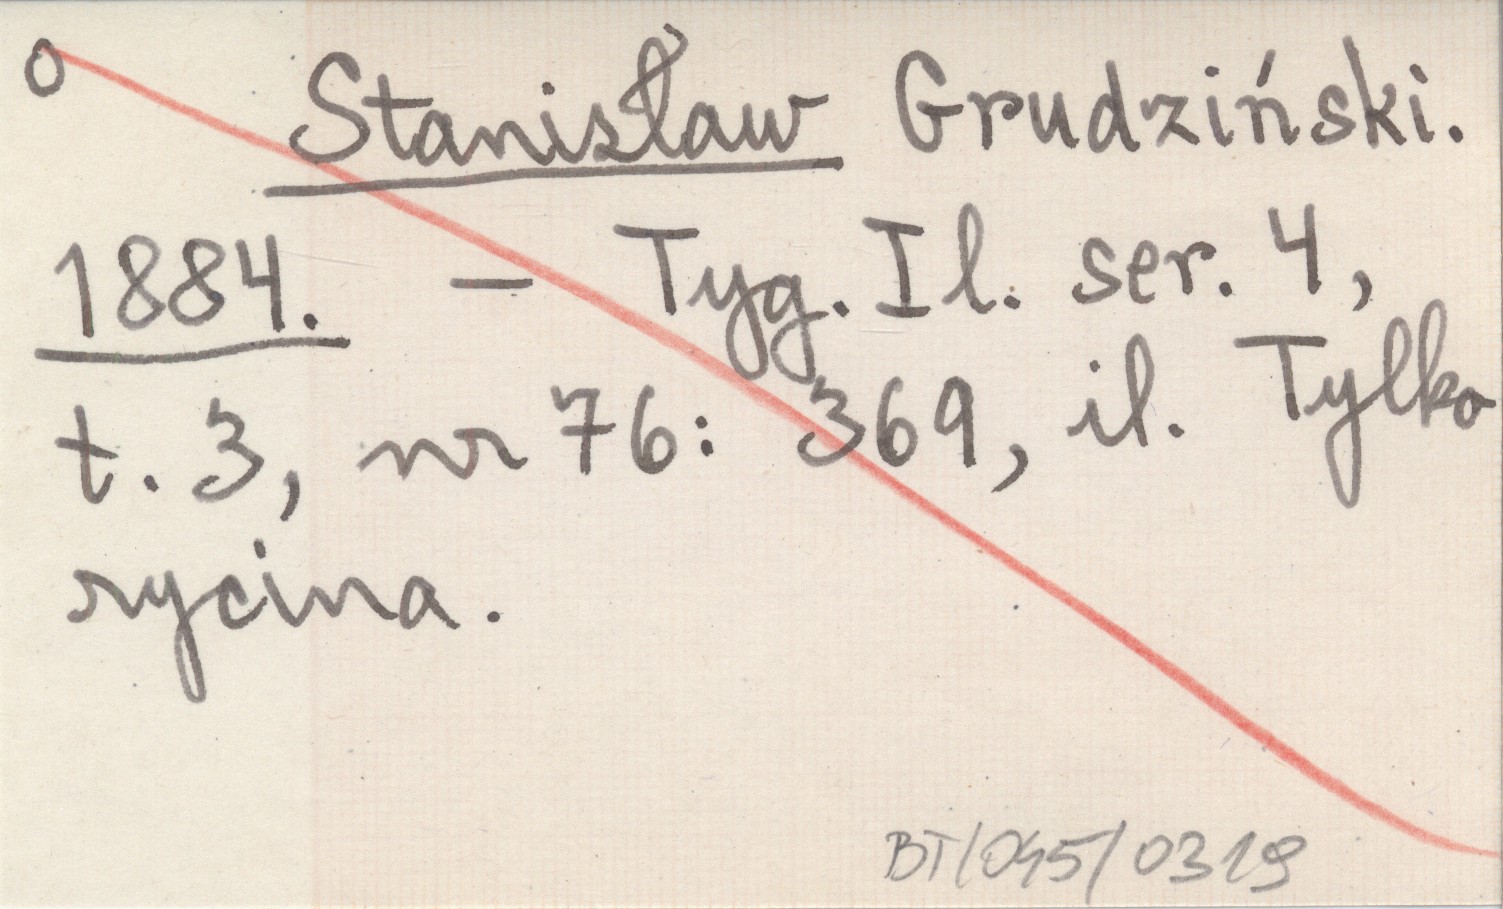 o Stanisław Grudziński.
1884. – Tyg. Il. ser. 4,
t. 3, nr 76: 369, il. Tylko
rycina.
BT/045/0319